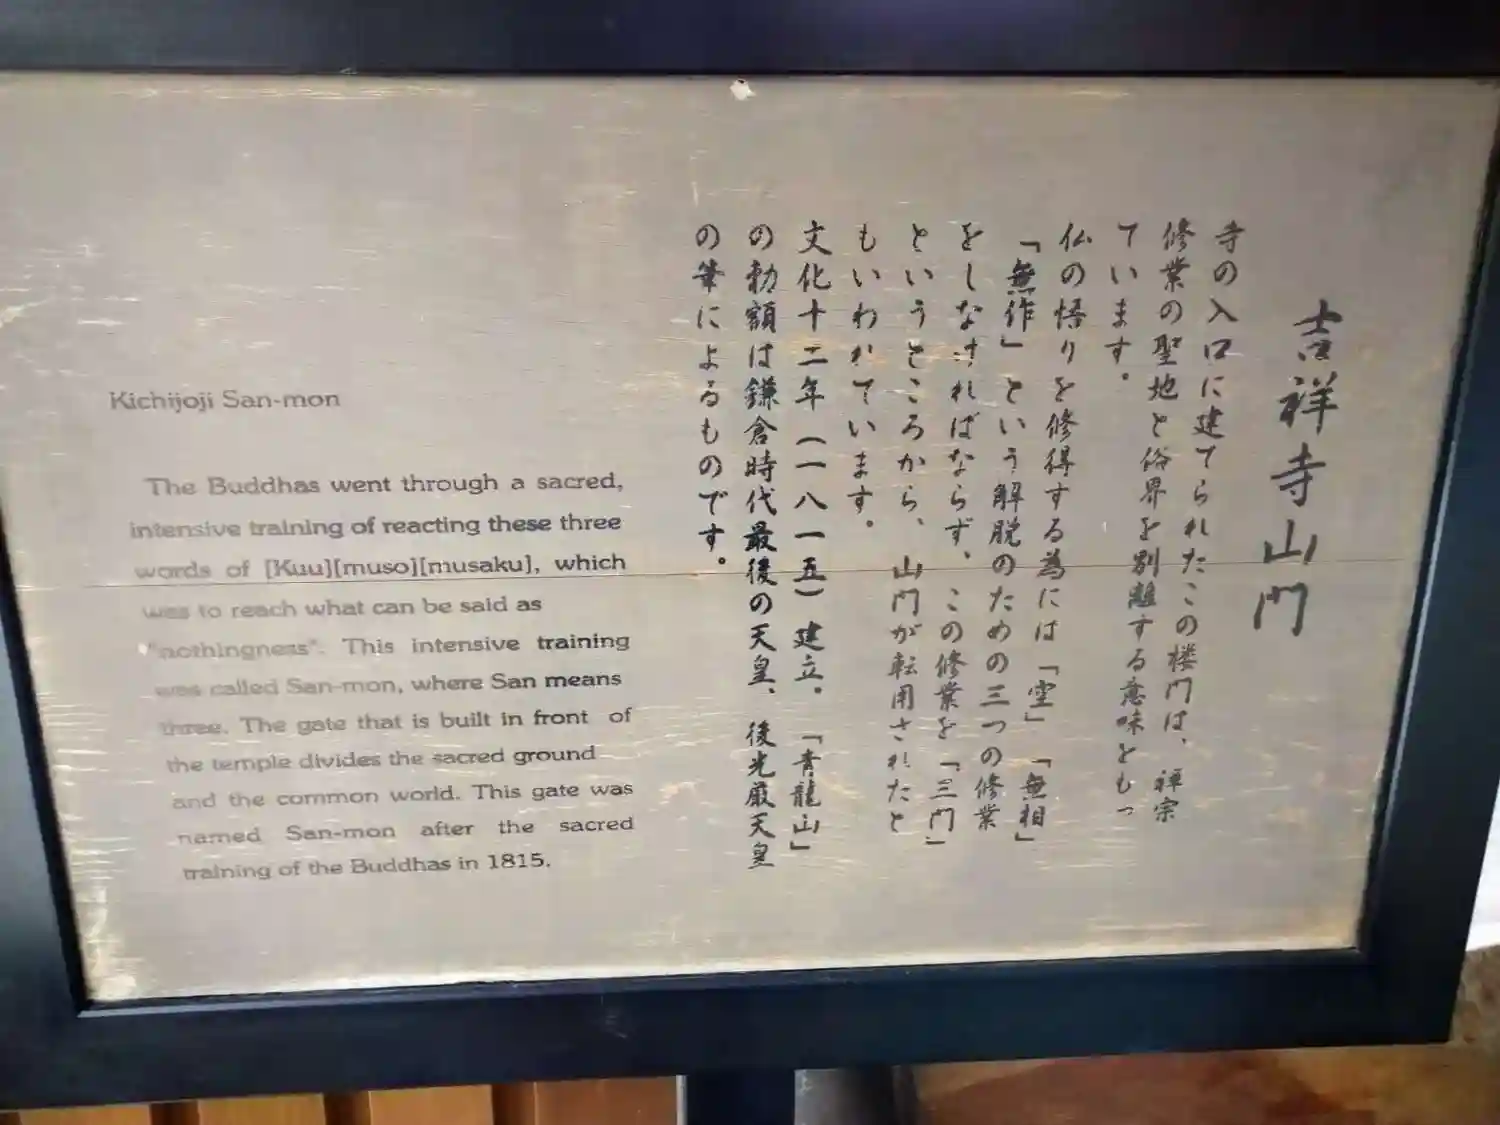 吉祥寺山門
寺の入口に建てられたこの楼門は、禅宗
修業の聖地と俗界を別離する意味ともっ
ています。
仏の悟りを修得する為には「空」「無相」
「無作」という解脱のための三つの修業
をしなければならず、この修業を「三門」
というところから、山門が転用されたと
もいわれています。
文化十二年（一八一五）建立。「青龍山」
の勅額は鎌倉時代最後の天皇、後光厳天皇
の筆によるものです。
Kichijoji San-mon
The Buddhas went through a sacred,
intensive training of reacting these three
words of [Kuu][muso][musaku], which
was to reach what can be said as
"nothingness". This intensive training
was called San-mon, where San means
three. The gate that is built in front of
the temple divides the sacred ground
and the common world. This gate was
named San-mon after the sacred
training of the Buddhas in 1815.